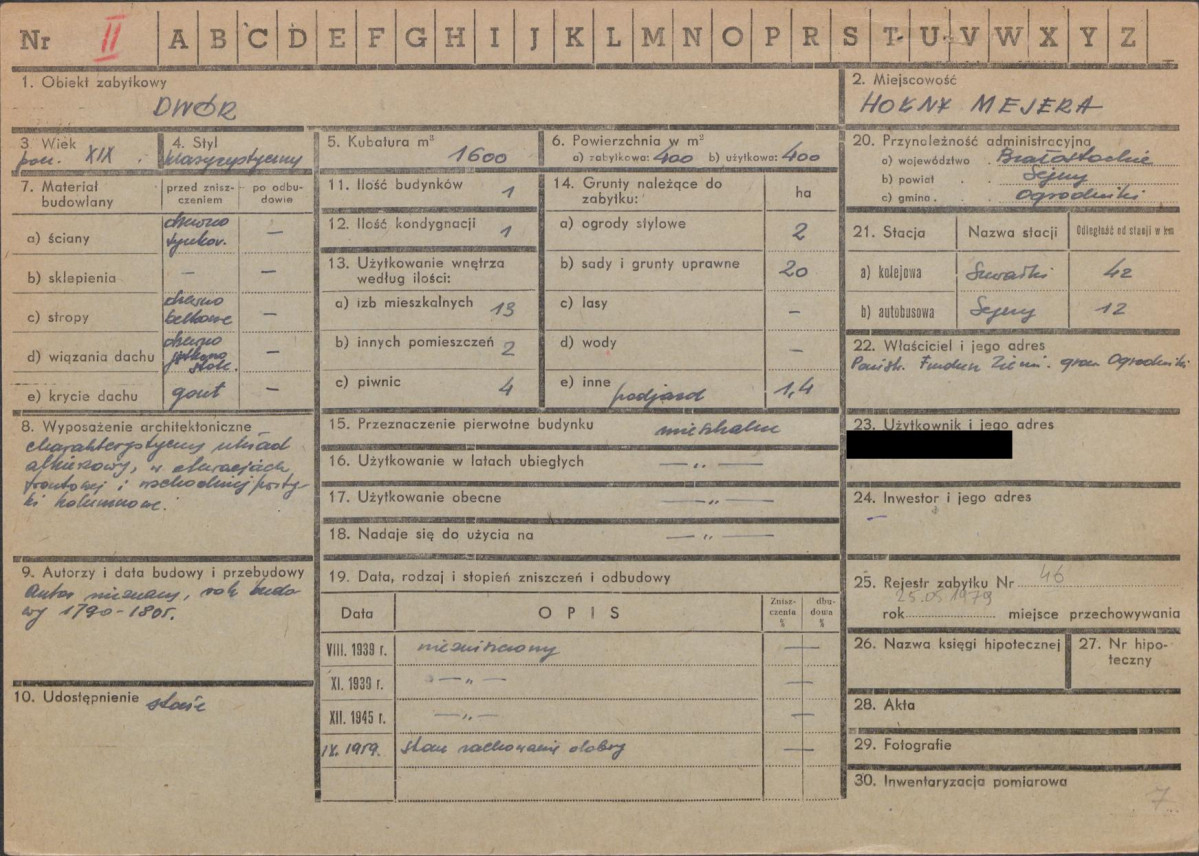 Nr II A B C D E F G H I J K L M N O P R S T U V W X Y Z
1. Obiekt zabytkowy
DWÓR
2. Miejscowość
HOŁNY MEJERA
3. Wiek
pocz. XIX.
4. Styl
klasycystyczny
5. Kubatura m³
1600
6. Powierzchnia w m²
a) zabytkowa: 400 b) użytkowa: 400
7. Materiał budowlany
przed znisz-czeniem
po odbu-dowie
a) ściany drewno tynkow. —
b) sklepienia — —
c) stropy drewno belkowe —
d) wiązania dachu drewno stolc. —
e) krycie dachu gont —
8. Wyposażenie architektoniczne
charakterystyczny układ
alkierzowy, w elewacjach
frontowej i wschodniej porty-
ki kolumnowe.
9. Autorzy i data budowy i przebudowy
Autor nieznany, rok budo
wy 1790-1805.
10. Udostępnienie stałe
11. Ilość budynków 1
12. Ilość kondygnacji 1
13. Użytkowanie wnętrza
według ilości:
a) izb mieszkalnych 13
b) innych pomieszczeń 2
c) piwnic 4
14. Grunty należące do
zabytku:
ha
a) ogrody stylowe 2
b) sady i grunty uprawne 20
c) lasy —
d) wody —
e) inne podjazd 1,4
15. Przeznaczenie pierwotne budynku mieszkalne
16. Użytkowanie w latach ubiegłych — „ —
17. Użytkowanie obecne — „ —
18. Nadaje się do użycia na — „ —
19. Data, rodzaj i stopień zniszczeń i odbudowy
Data
OPIS
Znisz-czenia %
dbu-dowa %
VIII. 1939 r. niezniszczony —
XI. 1939 r. — „ — —
XII. 1945 r. — „ — —
IX. 1959. stan zachowania dobry —
20. Przynależność administracyjna
a) województwo . Białostockie
b) powiat . . Sejny
c) gmina . . Ogrodniki
21. Stacja
Nazwa stacji
Odległość od stacji w km
a) kolejowa Suwałki 42
b) autobusowa Sejny 12
22. Właściciel i jego adres
Państw. Fundusz Ziemi. grom. Ogrodniki
23. Użytkownik i jego adres
24. Inwestor i jego adres
—
25. Rejestr zabytku Nr 46
25.05.1979
rok miejsce przechowywania
26. Nazwa księgi hipotecznej
27. Nr hipo-
teczny
28. Akta
29. Fotografie
30. Inwentaryzacja pomiarowa
7